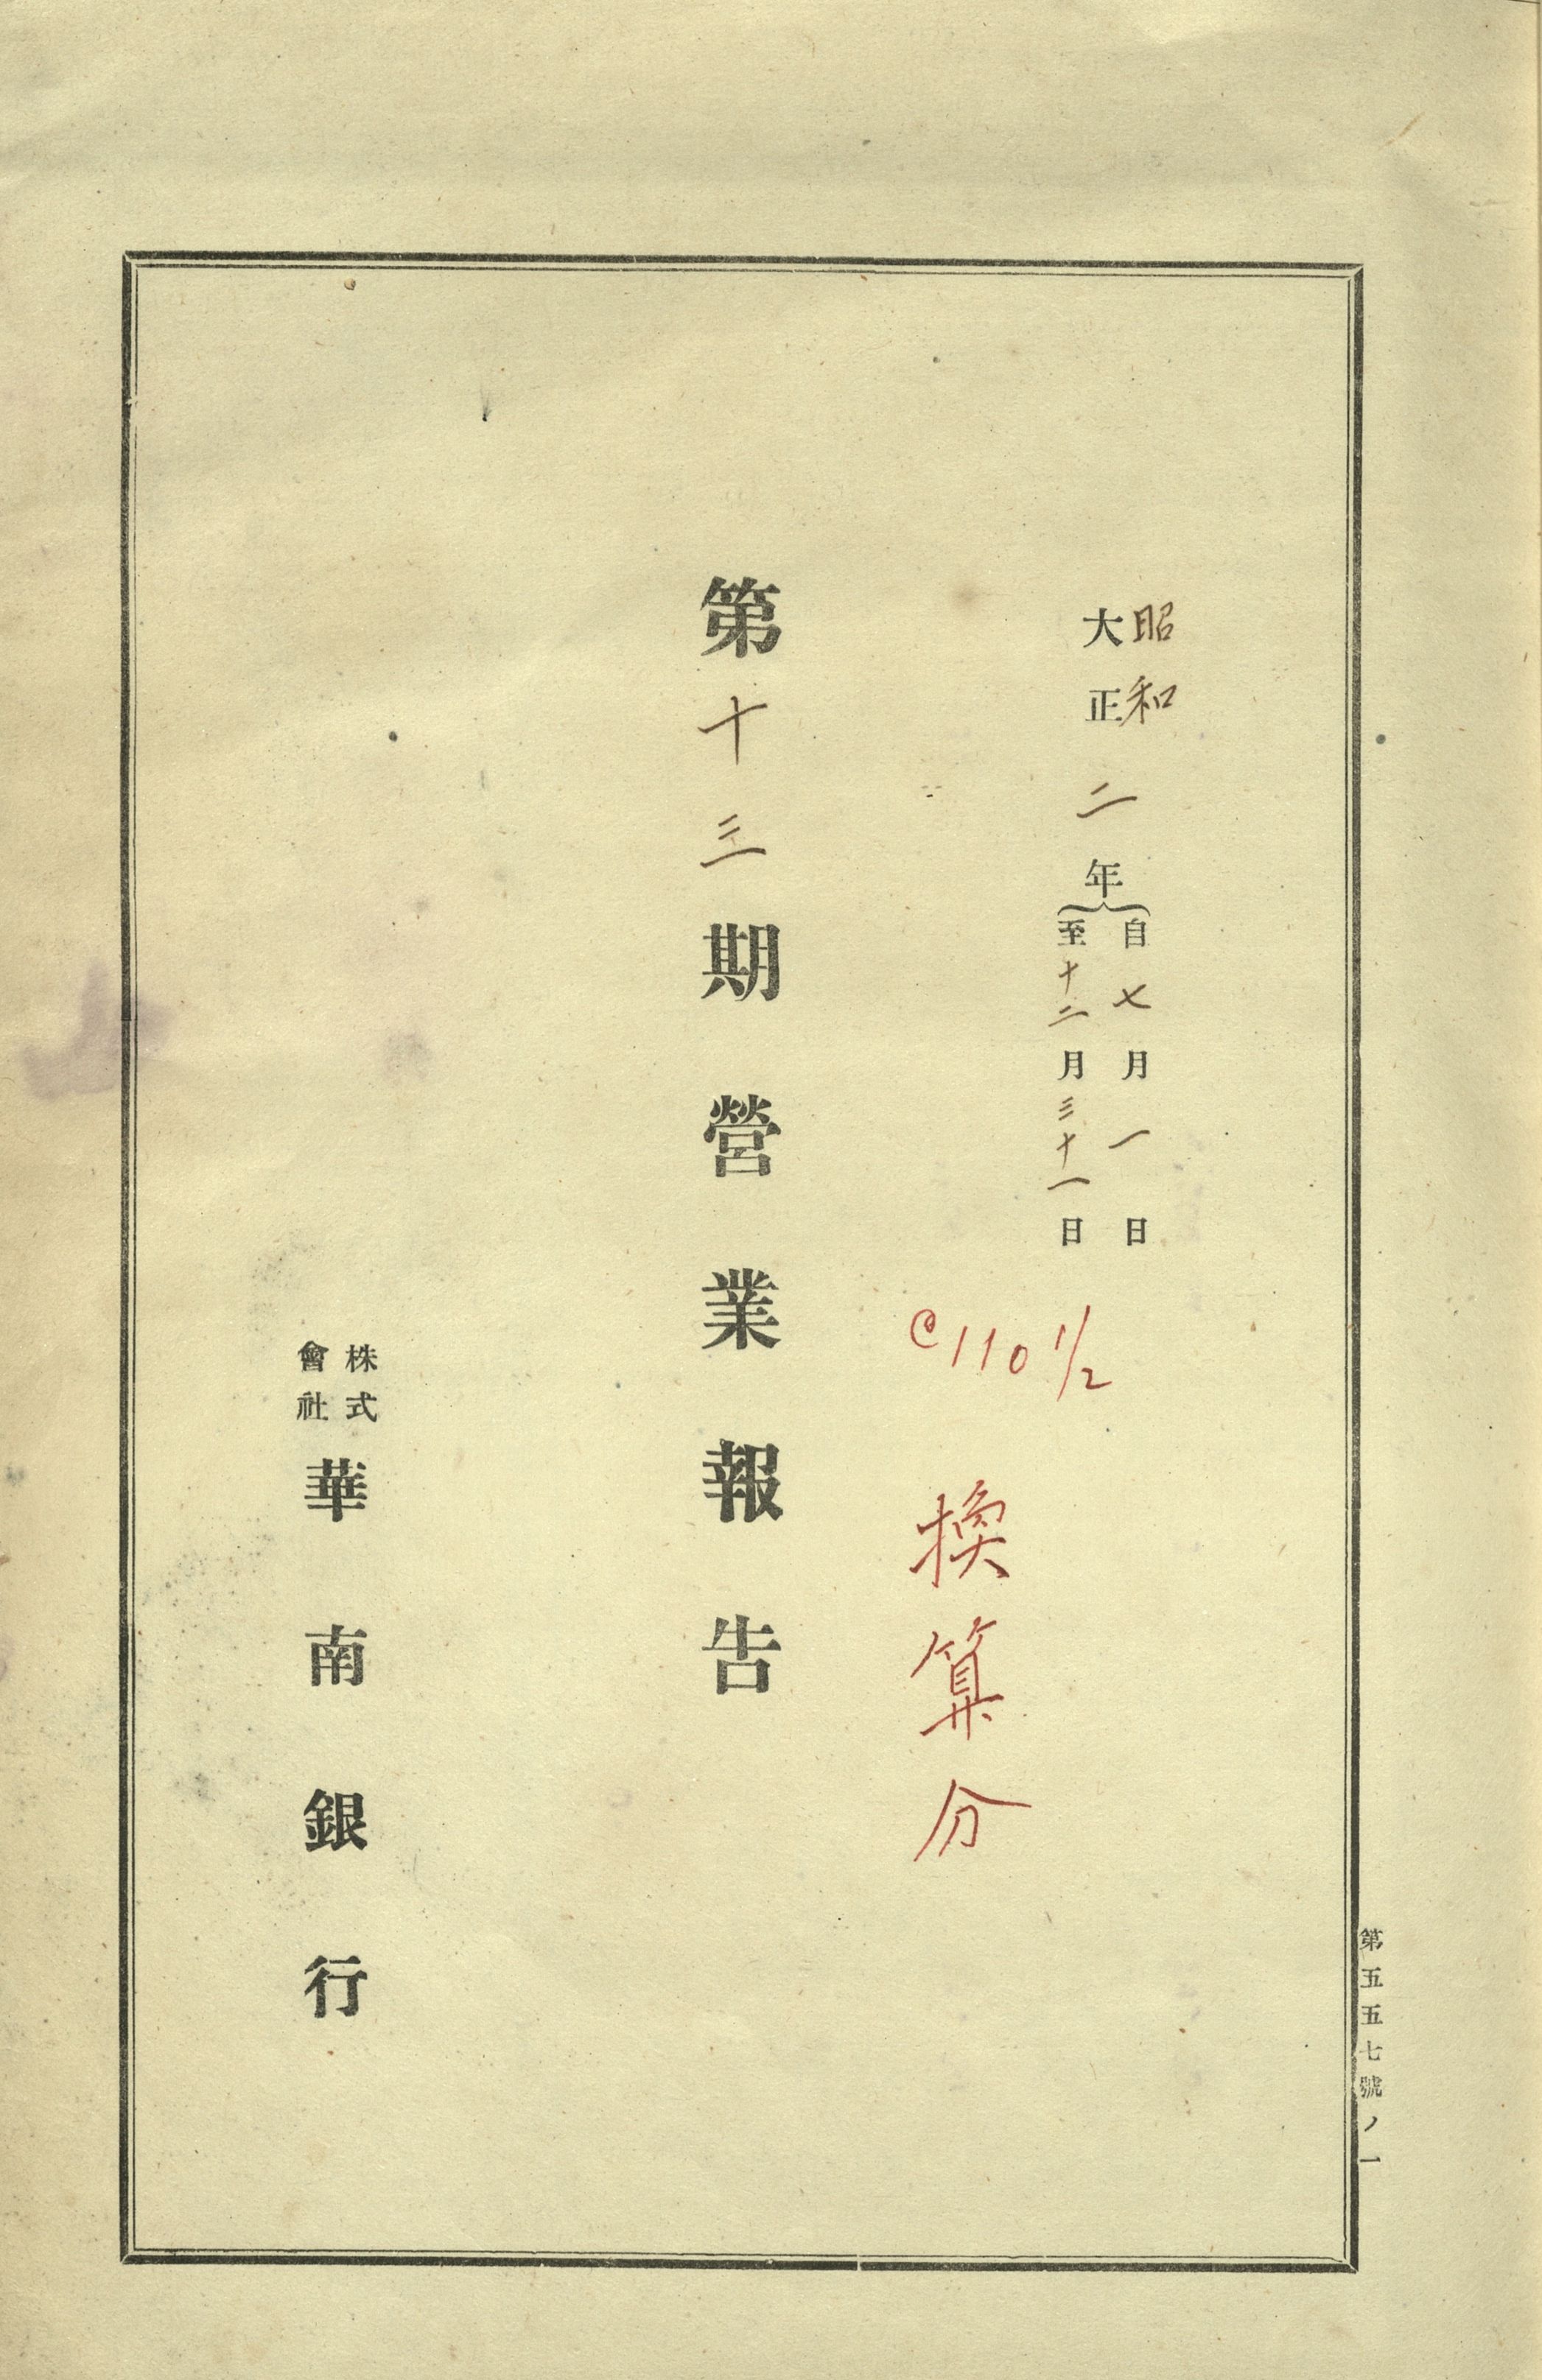 昭和
大正二年
自七月一日
至十二月三十一日
@110 1/2
換算分
第十三期營業報告
株式會社華南銀行
第五五七號ノ一